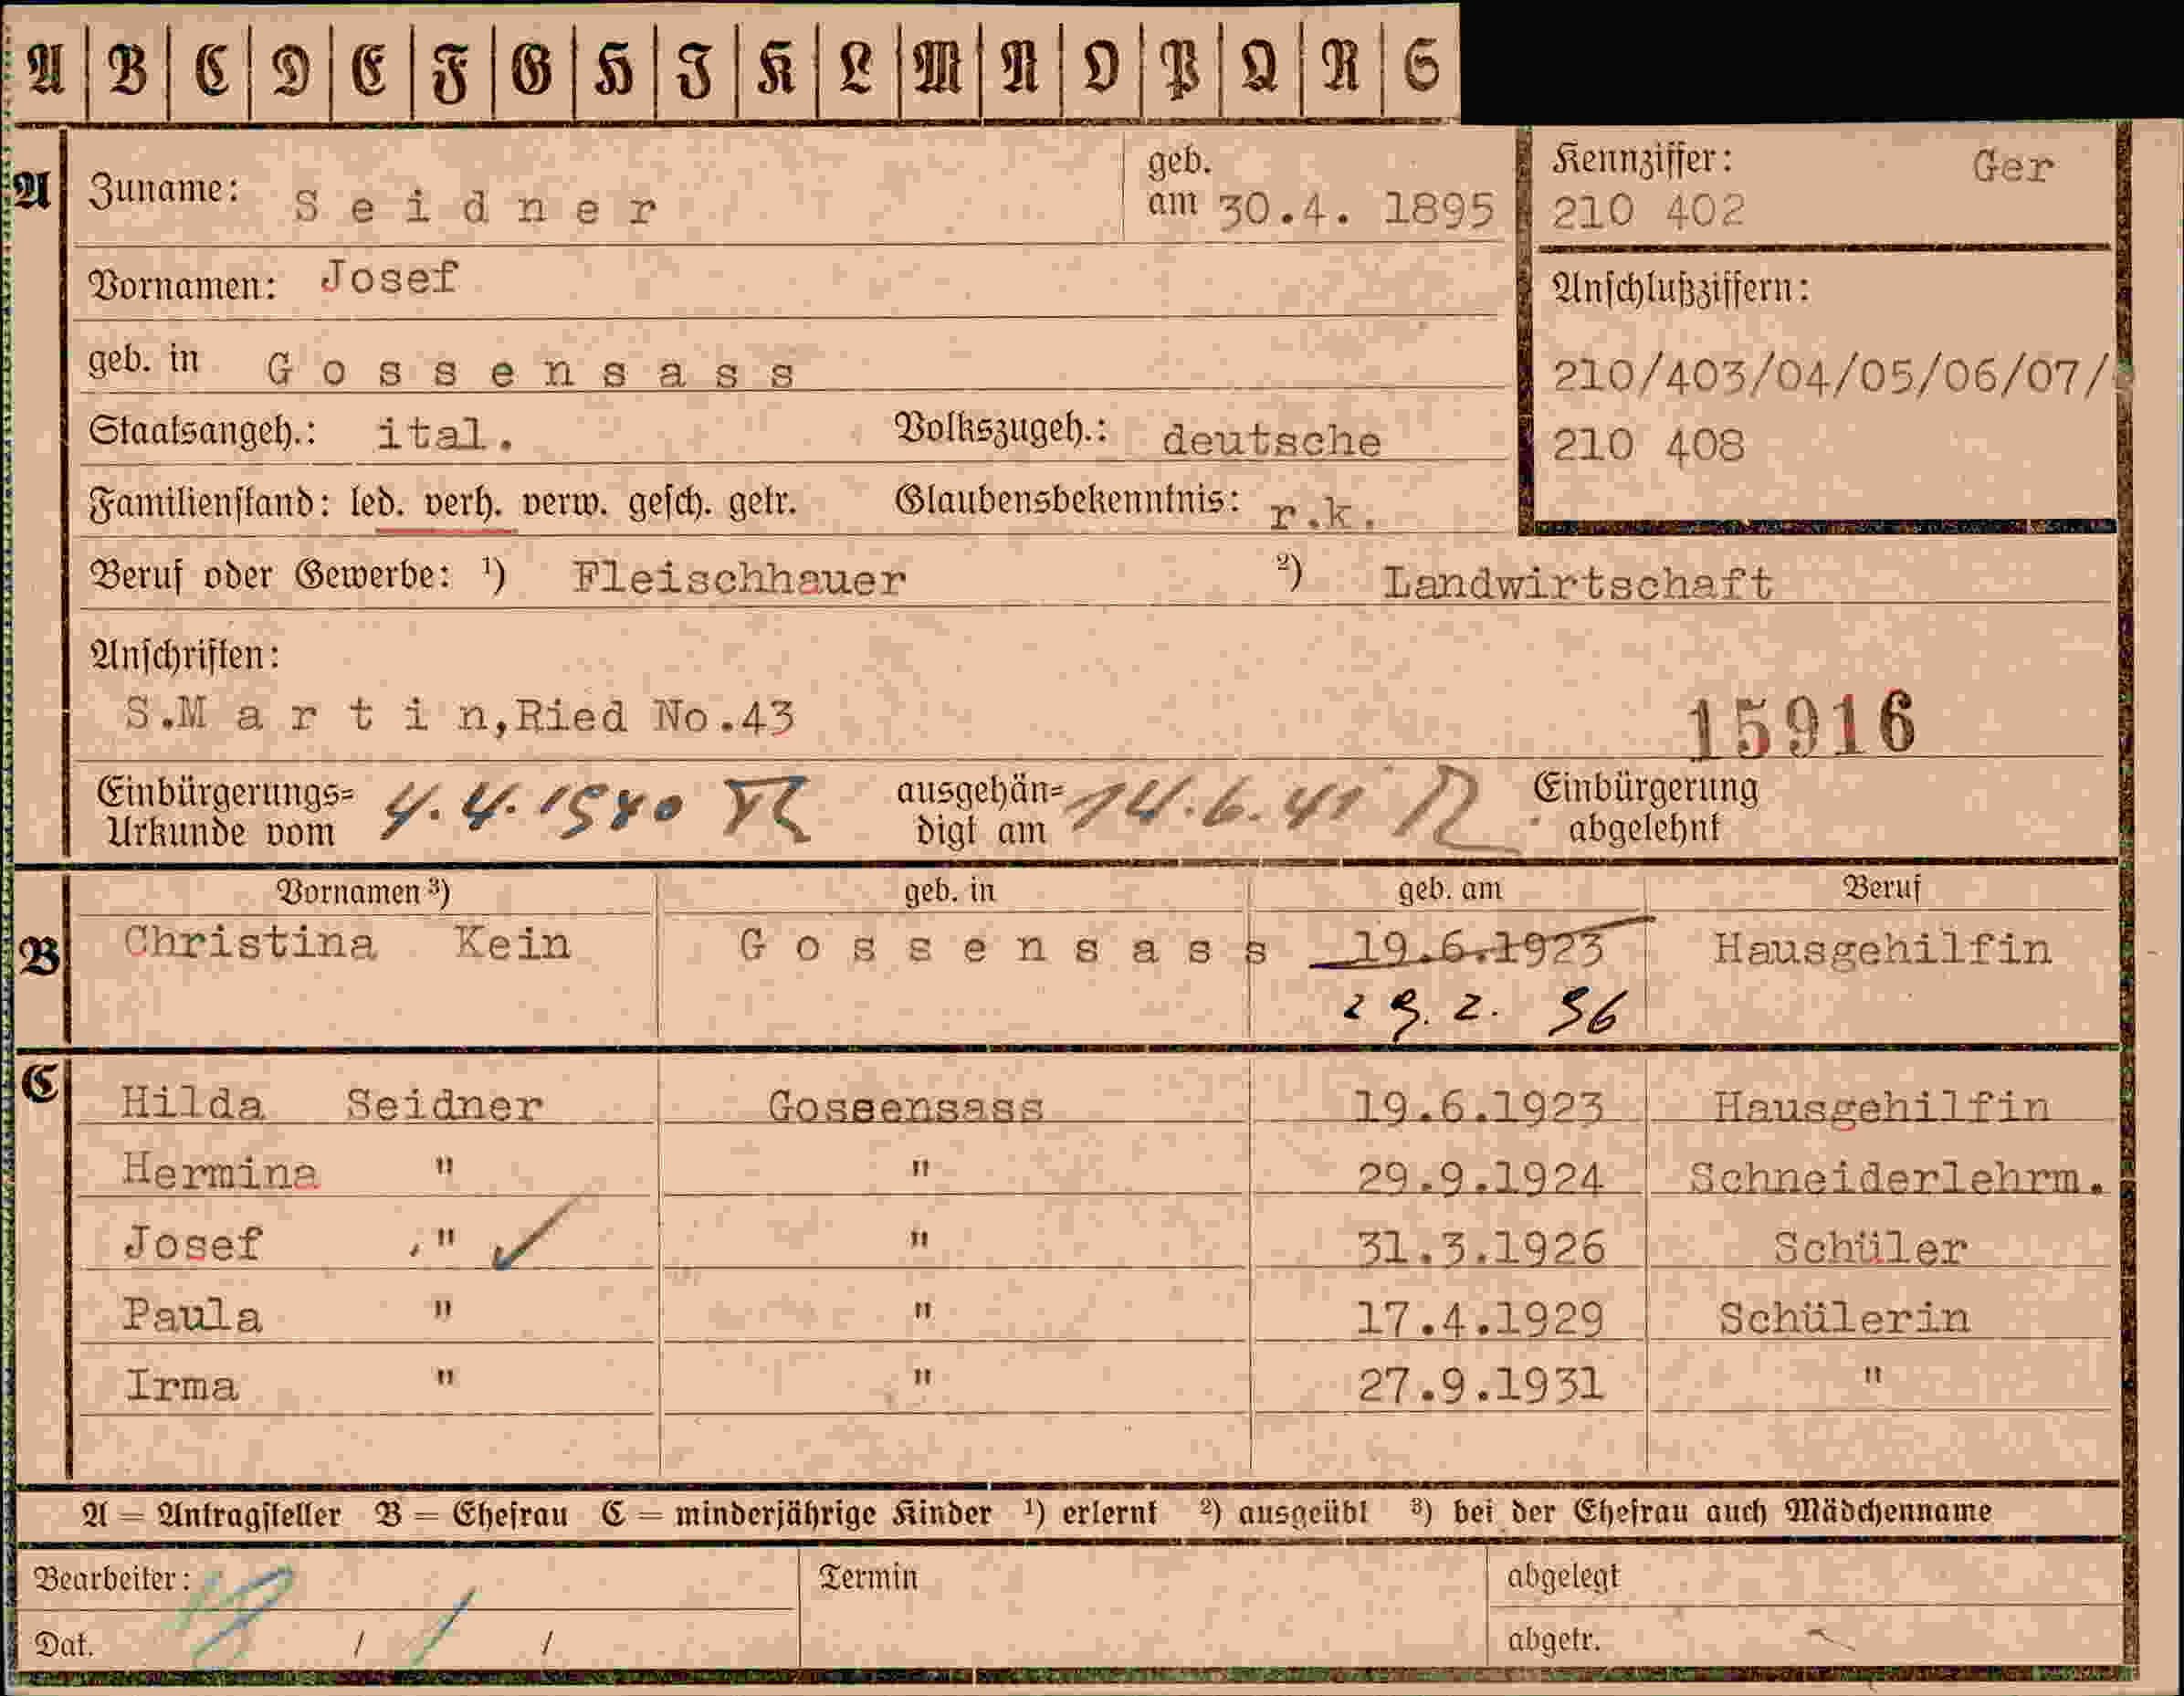 A B C D E F G H J K L M N O P Q R S
A Zuname: Seidner geb. am 30.4. 1895
Kennziffer: Ger
210 402
Vornamen: Josef
Anschlußziffern:
210/403/04/05/06/07/
210 408
geb. in Gossensass
Staatsangeh.: ital. Volkszugeh.: deutsche
Familienstand: led. verh. verw. gesch. getr. Glaubensbekenntnis: r.k.
Beruf oder Gewerbe: ¹) Fleischhauer ²) Landwirtschaft
Anschriften:
S.Martin,Ried No.43
15916
Einbürgerungs= Urkunde vom 4.4.1940 ausgehän= digt am 14.6.41 Einbürgerung abgelehnt
Vornamen ³) geb. in geb. am Beruf
B Christina Kein Gossensass 19.6.1923 Hausgehilfin
29.2. 96
C
Hilda Seidner Goseensass 19.6.1923 Hausgehilfin
Hermina " " 29.9.1924 Schneiderlehrm.
Josef ," " 31.3.1926 Schüler
Paula " " 17.4.1929 Schülerin
Irma " " 27.9.1931 "
A = Antragsteller B = Ehefrau C = minderjährige Kinder ¹) erlernt ²) ausgeübt ³) bei der Ehefrau auch Mädchenname
Bearbeiter: Termin abgelegt
Dat. / / abgetr.